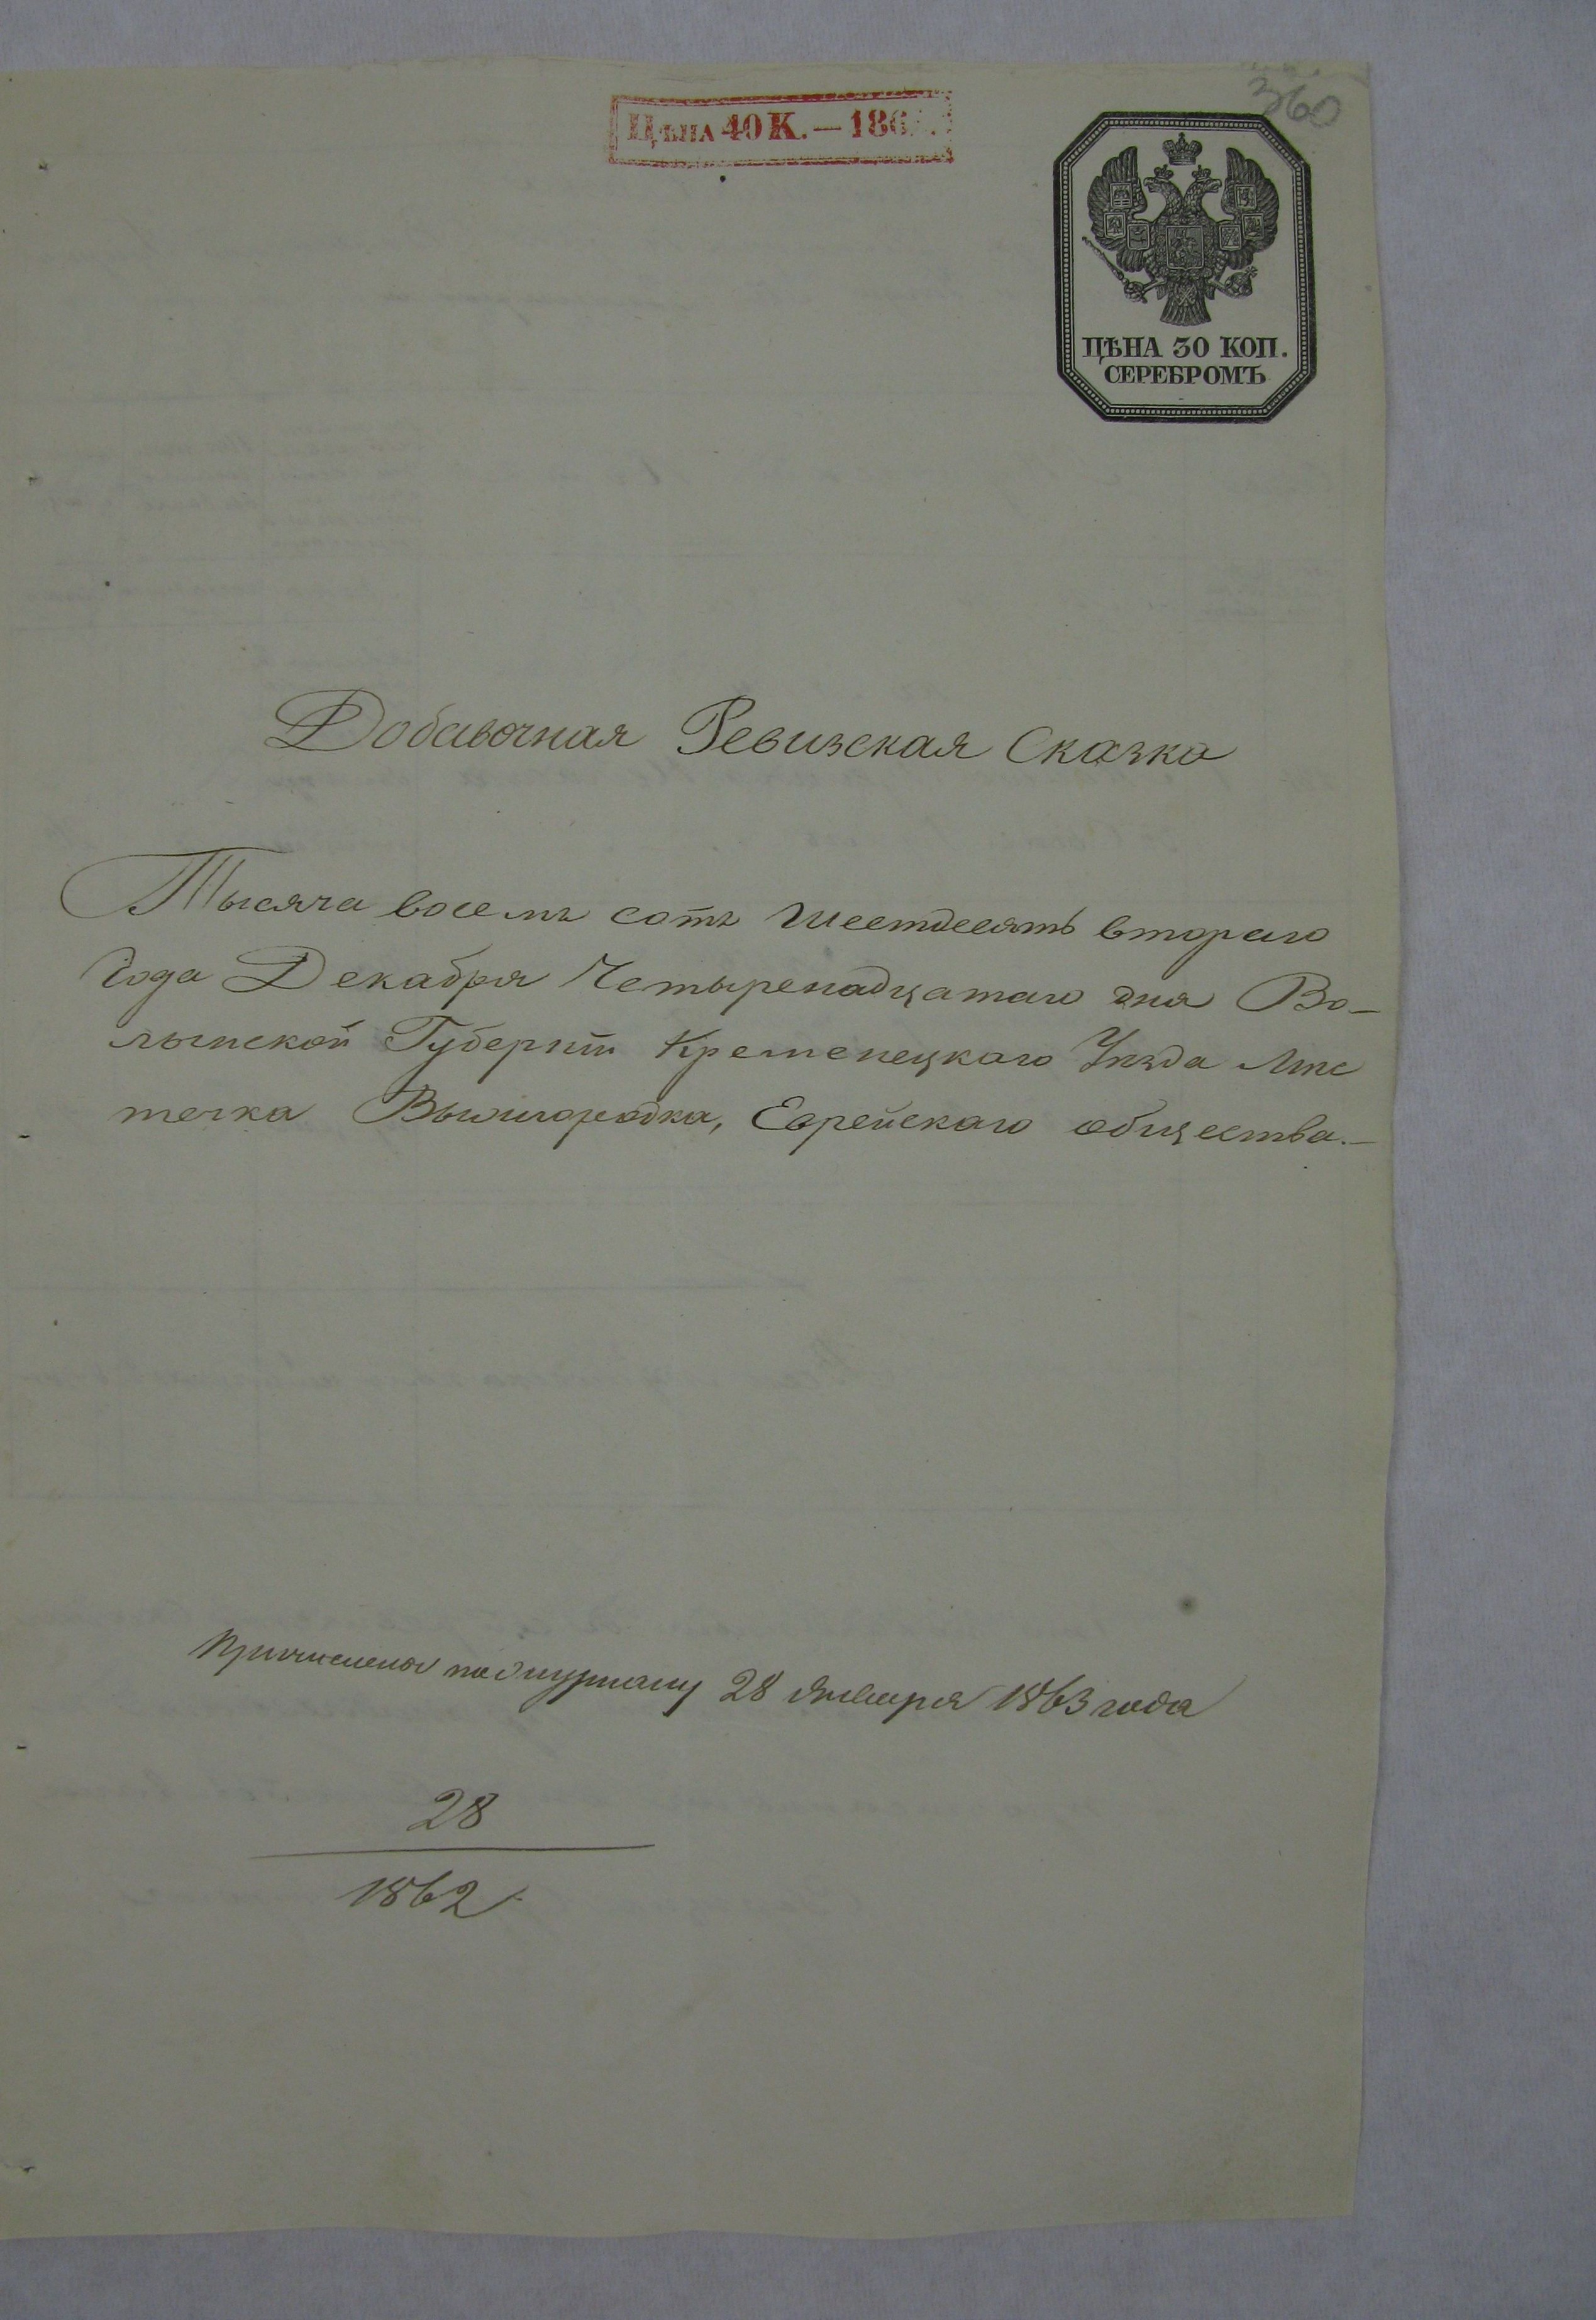 360
Цѣна 40 К. — 186
ЦѢНА 30 КОП.
СЕРЕБРОМЪ
Добавочная Ревизская Сказка
Тысяча восемь сотъ шестдесятъ втораго
Года Декабря Четыренадцатаго дня Во-
лынской Губернiи Кременецкаго Уѣзда Мѣс
течка Вышгородка, Еврейскаго общества.—
Причислена по журналу 28 Января 1863 года
28
1862